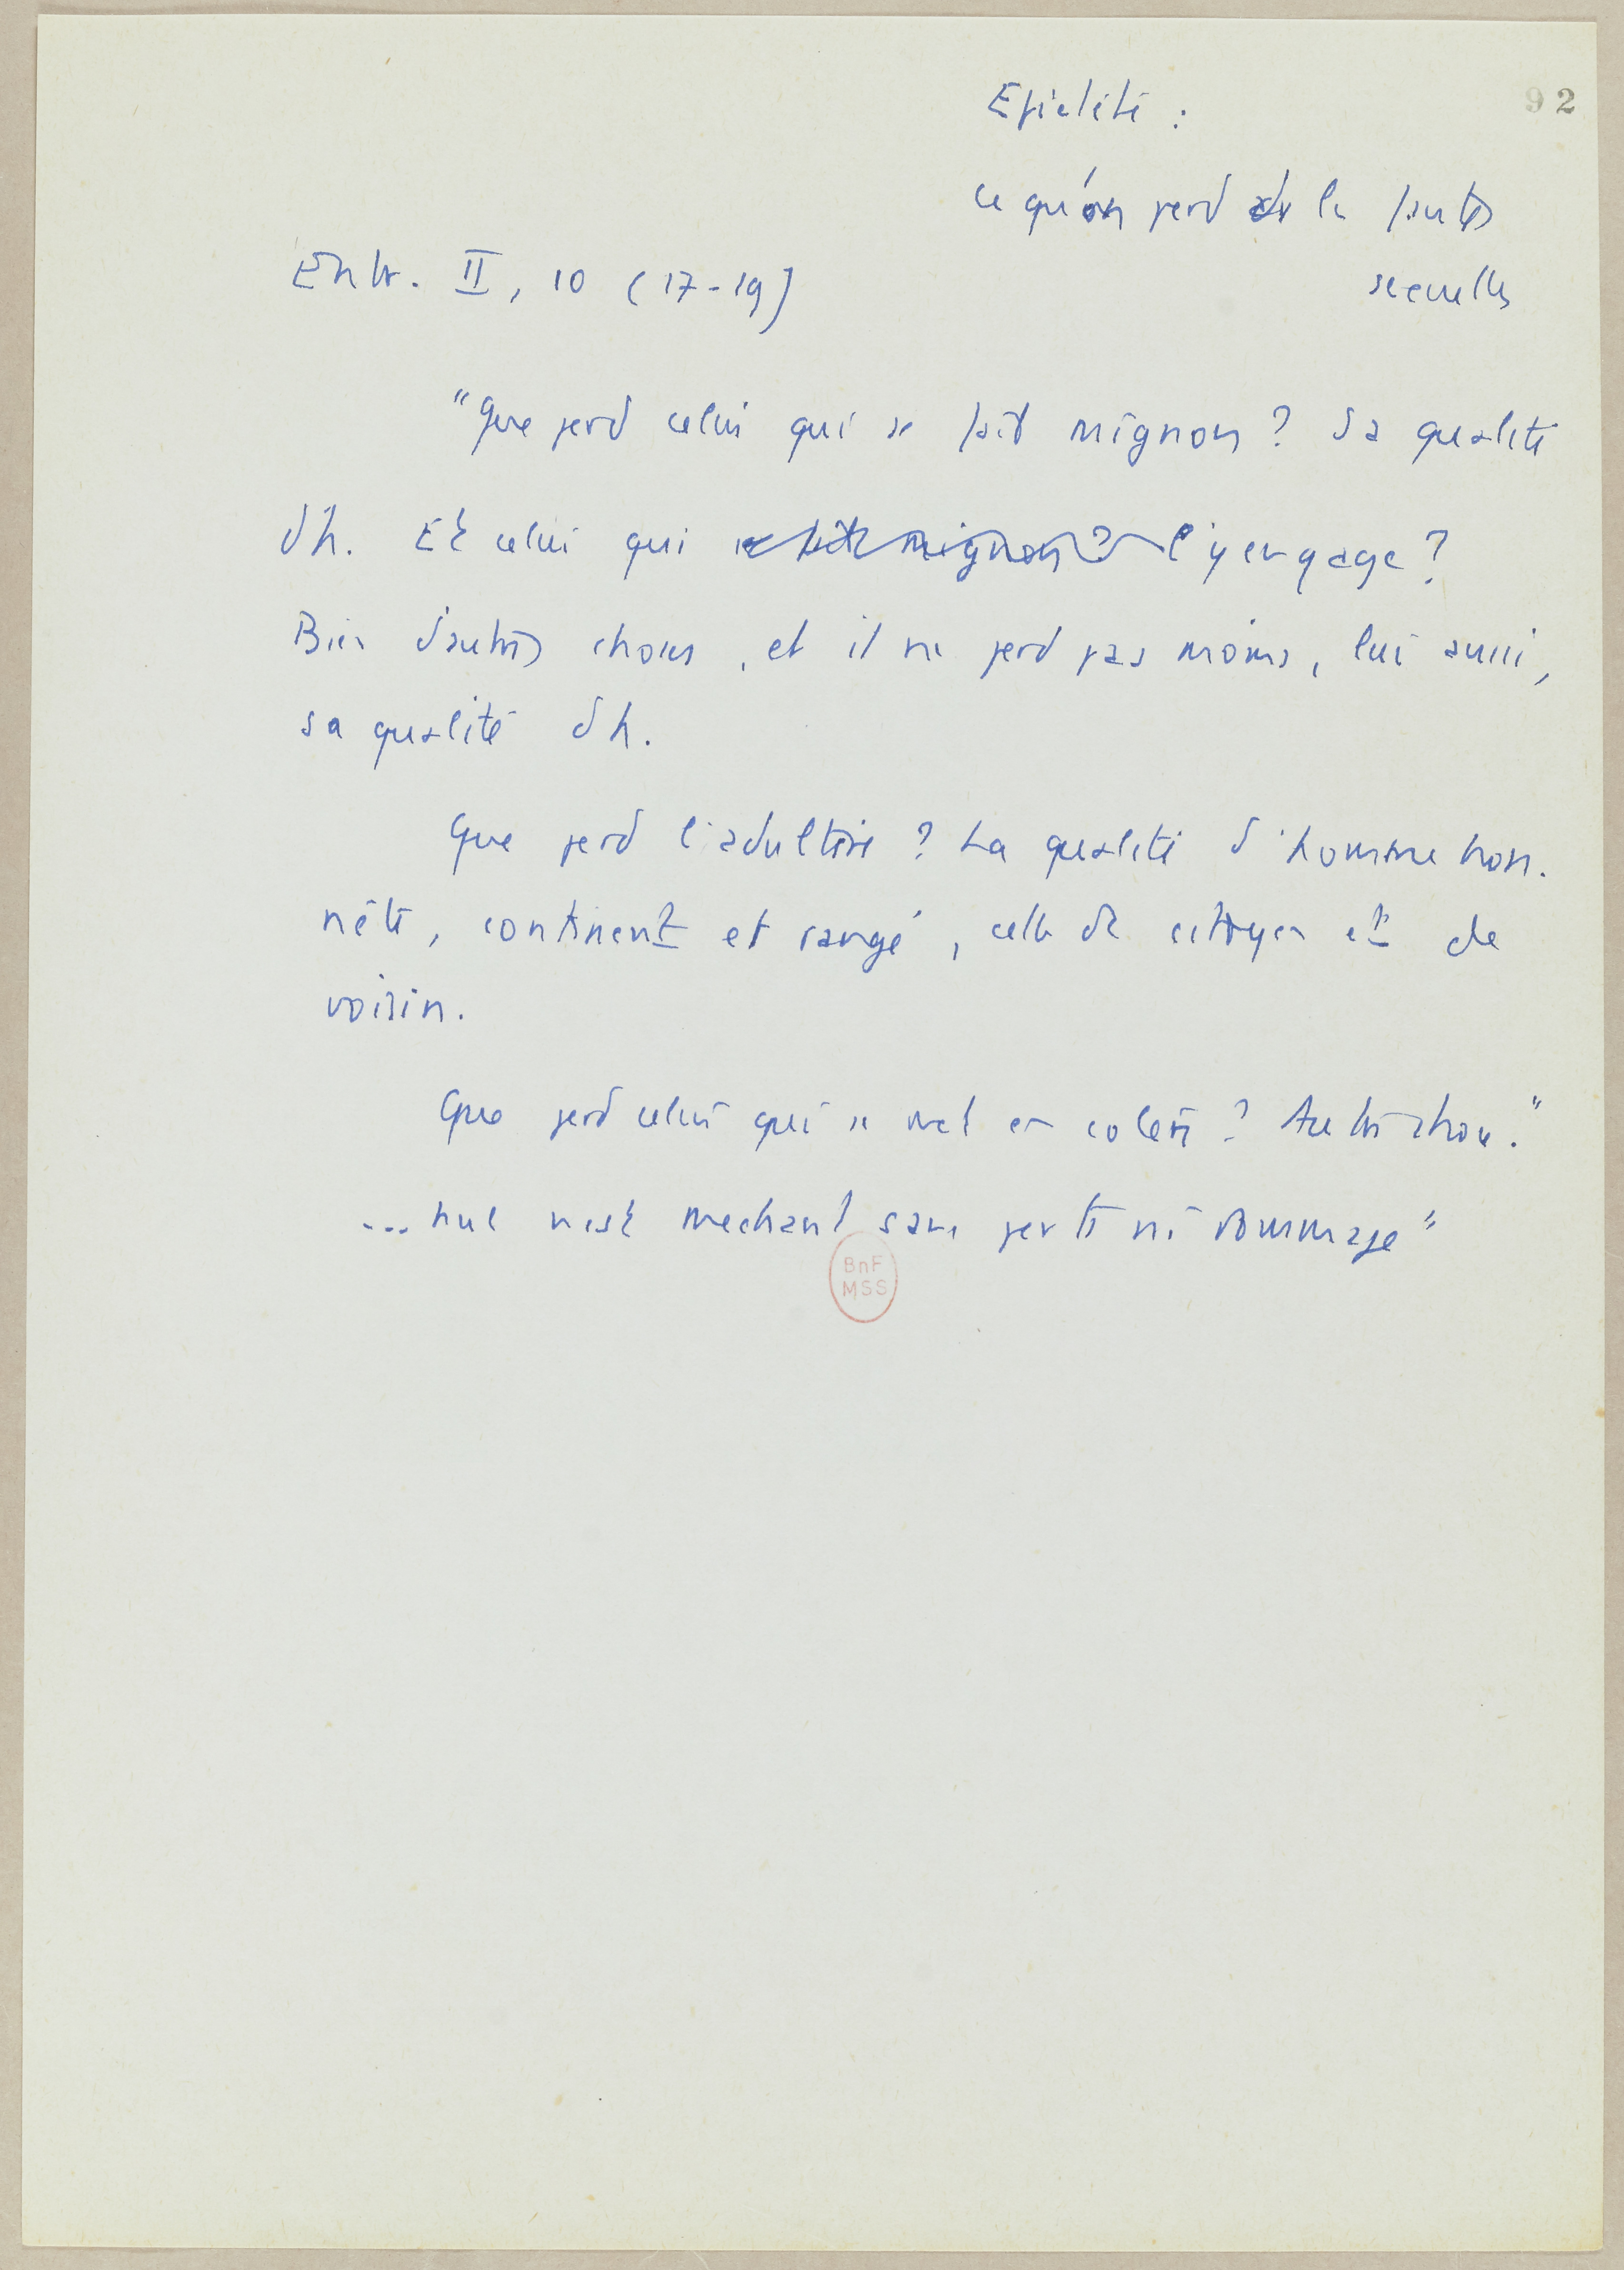 92
Epictète :
ce qu'on perd ds les fautes
sexuelles
Entr. II, 10 (17-19)
"Que perd celui qui se fait mignon ? Sa qualité
d'h. Et celui qui se fait mignon ? l'y engage ?
Bien d'autres choses, et il ne perd pas moins, lui aussi,
sa qualité d'h.
Que perd l'adultère ? La qualité d'homme hon-
nête, continent et rangé, celle de citoyen et de
voisin.
Que perd celui qui se met en colère ? Autre chose."
... nul n'est méchant sans perte ni dommage"
BnF
MSS